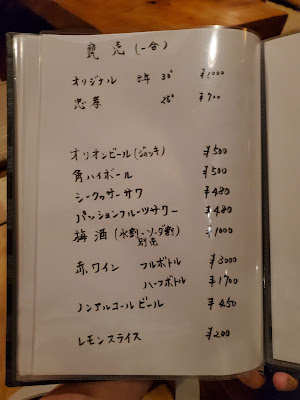 甕売(一合)
オリジナル 5年 30° ¥1000
忠孝 25° ¥700
オリオンビール(ジョッキ) ¥500
角ハイボール ¥500
シークヮサーサワ ¥480
パッションフルーツサワー ¥480
梅酒(水割・ソーダ割) ¥1000
別売
赤ワイン フルボトル ¥3000
ハーフボトル ¥1700
ノンアルコールビール ¥450
レモンスライス ¥200